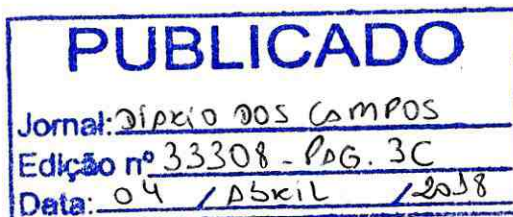 PUBLICADO
Jornal: DIÁRIO DOS CAMPOS
Edição nº 33308 - PAG. 3C
Data: 04 / ABRIL / 2018